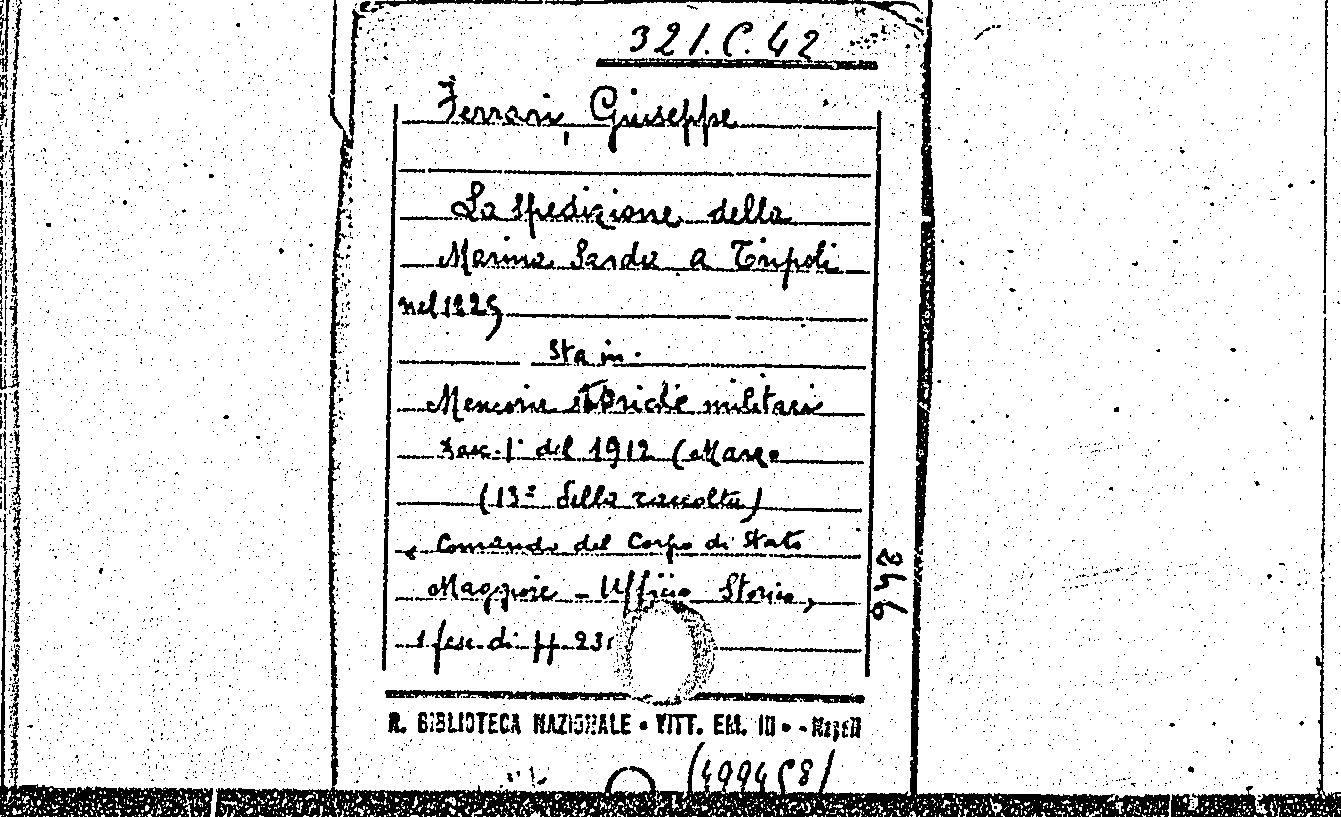 321.C.42
Ferrari, Giuseppe
La spedizione della
Marina Sarda a Tripoli
nel 1825
Sta in.
Memorie storiche militari
Fasc. 1° del 1912 (Marzo
(13ª della raccolta)
« Comando del Corpo di Stato
Maggiore - Ufficio Storico,
1 fasc. di pp. 231
946
R. BIBLIOTECA NAZIONALE • VITT. EM. III • - Napoli